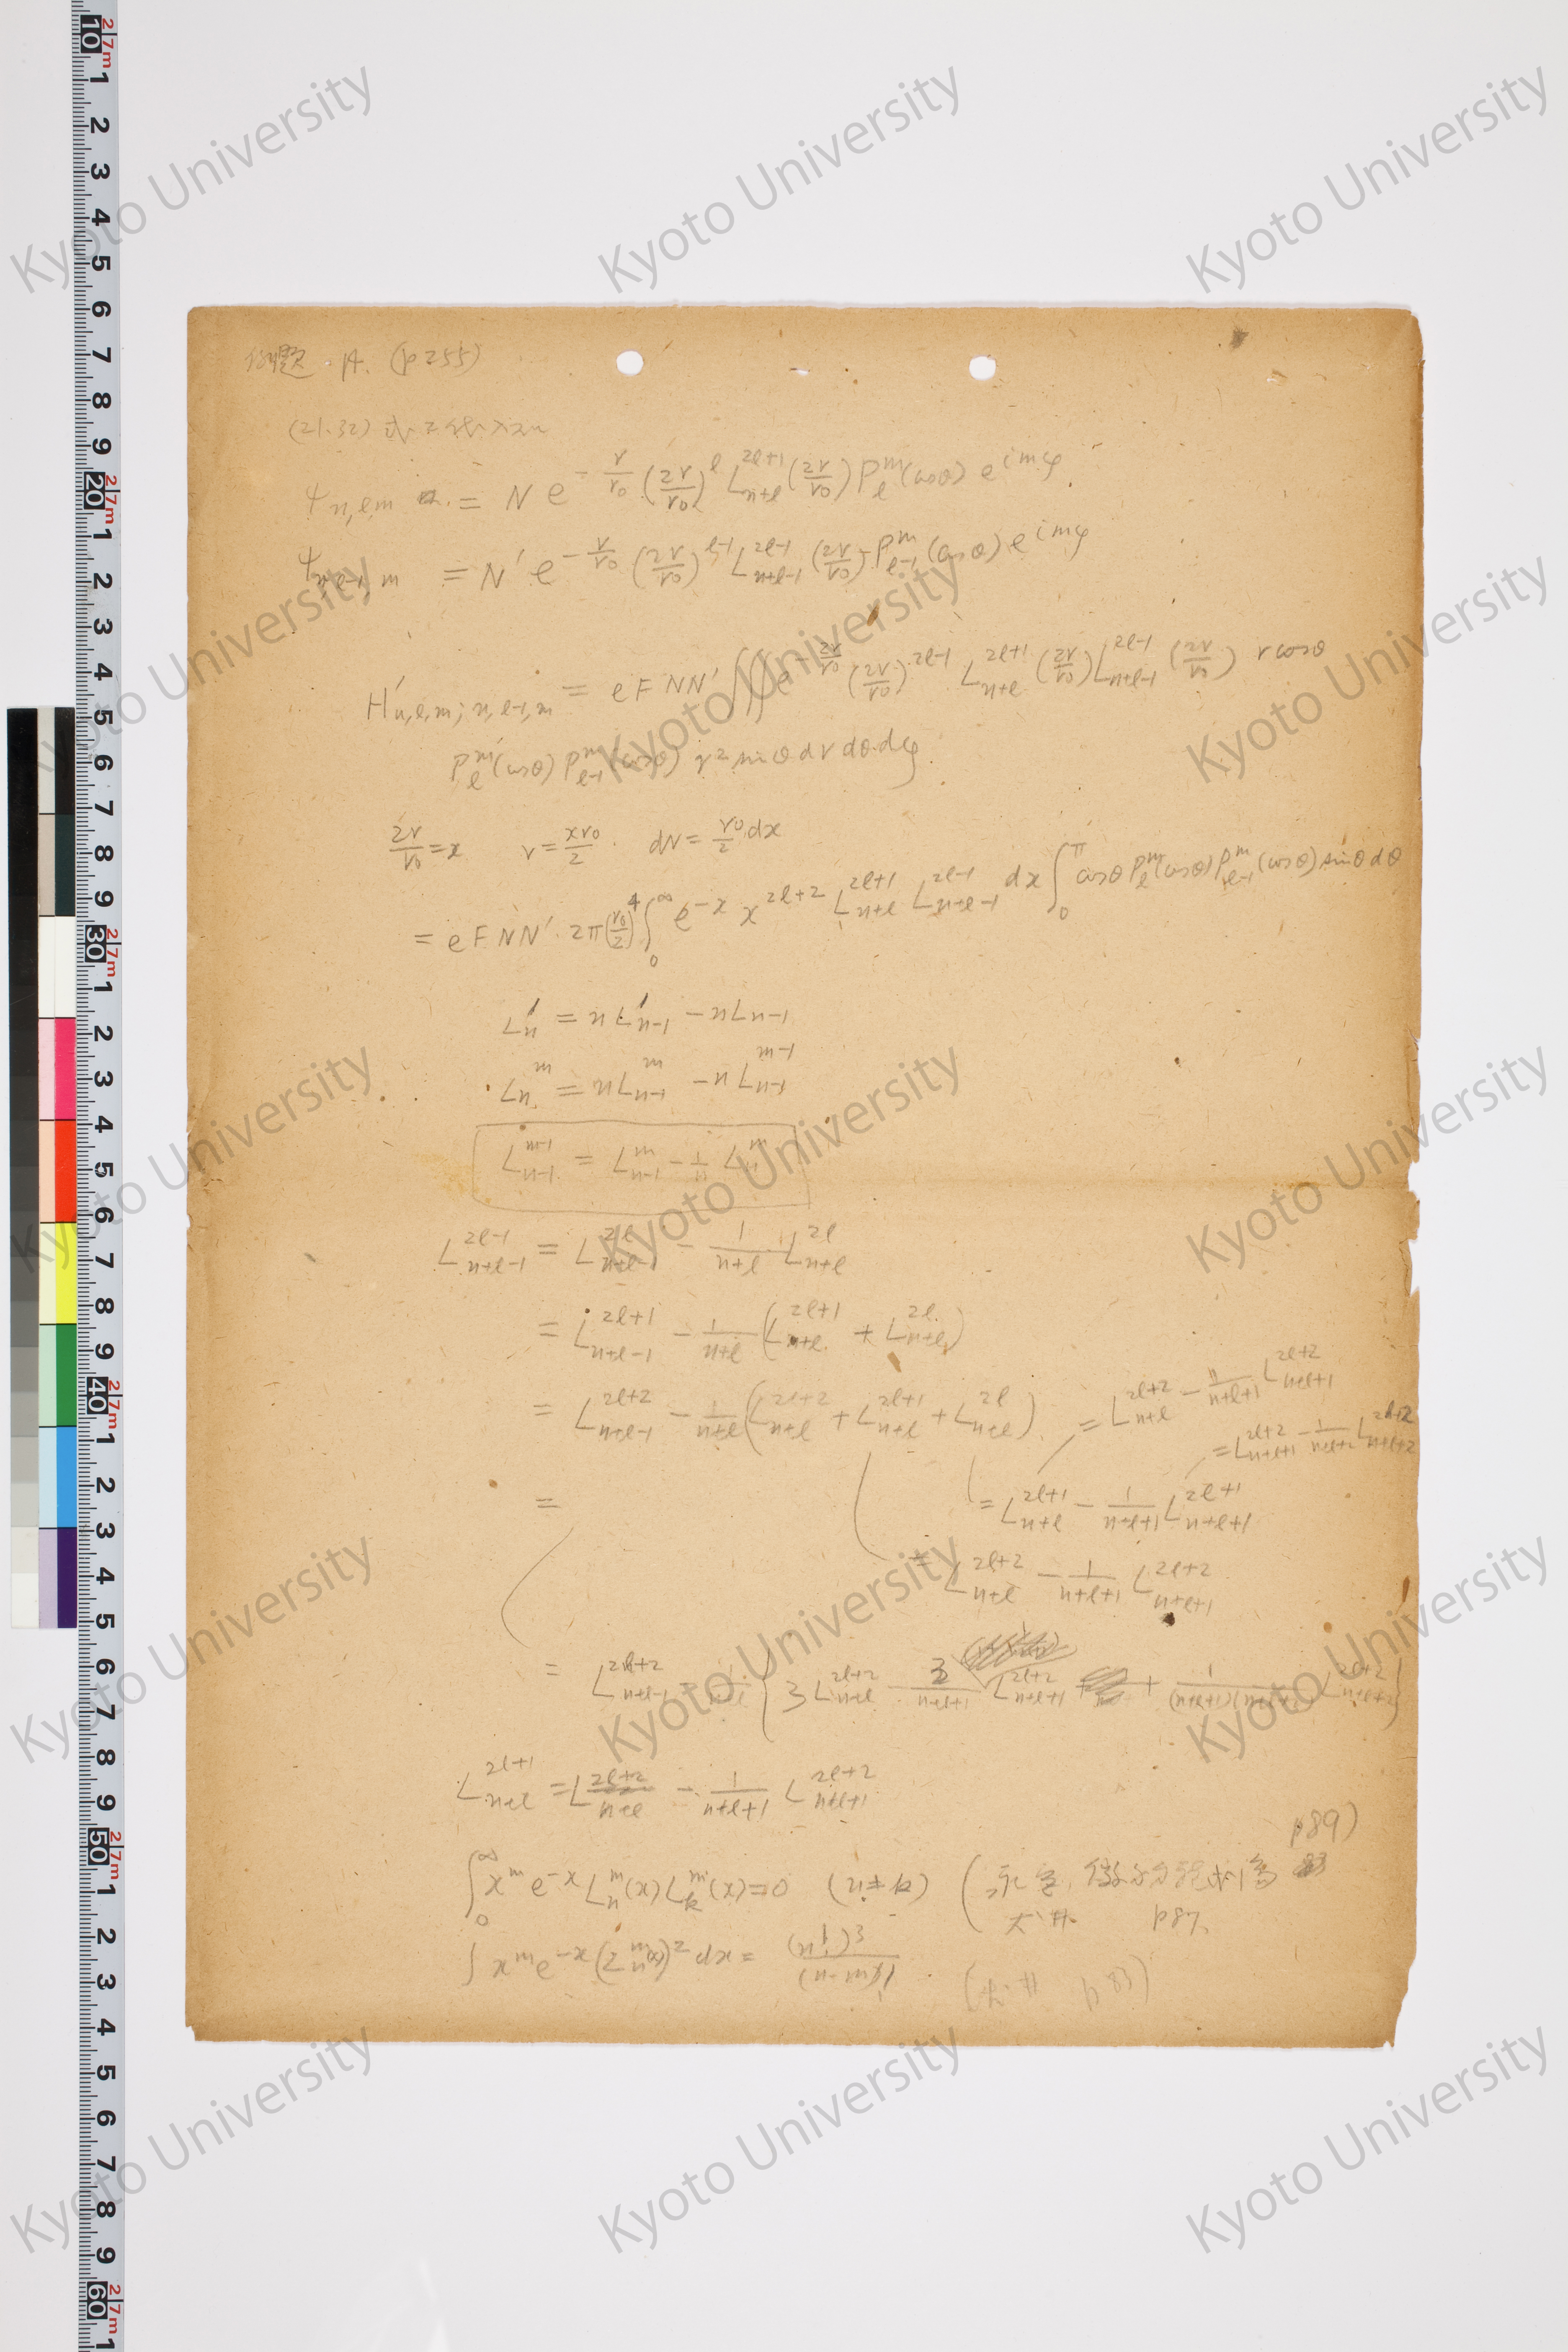 例題 A. (p 255)
(21.32) 式
ψ_{n,l,m} = N e^{-r/r₀} (2r/r₀)^l L_{n+l}^{2l+1} (2r/r₀) P_l^m (cosθ) e^{imφ}
ψ_{n,l-1,m} = N' e^{-r/r₀} (2r/r₀)^{l-1} L_{n+l-1}^{2l-1} (2r/r₀) P_{l-1}^m (cosθ) e^{imφ}
H'_{n,l,m; n,l-1,m} = eFNN' ∫∫∫ e^{-2r/r₀} (2r/r₀)^{2l-1} L_{n+l}^{2l+1} (2r/r₀) L_{n+l-1}^{2l-1} (2r/r₀) r cosθ
P_l^m (cosθ) P_{l-1}^m (cosθ) r² sinθ dr dθ dφ
2r/r₀ = x r = xr₀/2 . dr = r₀/2 dx
= eFNN' 2π (r₀/2)^4 ∫_0^∞ e^{-x} x^{2l+2} L_{n+l}^{2l+1} L_{n+l-1}^{2l-1} dx ∫_0^π cosθ P_l^m (cosθ) P_{l-1}^m (cosθ) sinθ dθ
L'_n = n L'_{n-1} - n L_{n-1}
L_n^m = n L_{n-1}^m - n L_{n-1}^{m-1}
L_{n-1}^{m-1} = L_{n-1}^m - 1/n L_n^m
L_{n+l-1}^{2l-1} = L_{n+l-1}^{2l} - 1/(n+l) L_{n+l}^{2l}
= L_{n+l-1}^{2l+1} - 1/(n+l) (L_{n+l}^{2l+1} + L_{n+l}^{2l})
= L_{n+l-1}^{2l+2} - 1/(n+l) (L_{n+l}^{2l+2} + L_{n+l}^{2l+1} + L_{n+l}^{2l})
= L_{n+l}^{2l+2} - 1/(n+l+1) L_{n+l+1}^{2l+2}
= L_{n+l+1}^{2l+2} - 1/(n+l+2) L_{n+l+2}^{2l+2}
=
= L_{n+l}^{2l+1} - 1/(n+l+1) L_{n+l+1}^{2l+1}
= L_{n+l}^{2l+2} - 1/(n+l+1) L_{n+l+1}^{2l+2}
= L_{n+l-1}^{2l+2} - 1/(n+l) { 3 L_{n+l}^{2l+2} - 3/(n+l+1) L_{n+l+1}^{2l+2} + 1/((n+l+1)(n+l+2)) L_{n+l+2}^{2l+2} }
L_{n+l}^{2l+1} = L_{n+l}^{2l+2} - 1/(n+l+1) L_{n+l+1}^{2l+2}
∫_0^∞ x^m e^{-x} L_n^m (x) L_k^m (x) = 0 (n≠k) ( p89)
p87.
∫ x^m e^{-x} (L_n^m(x))² dx = (n!)³/(n-m)! ( p 83)